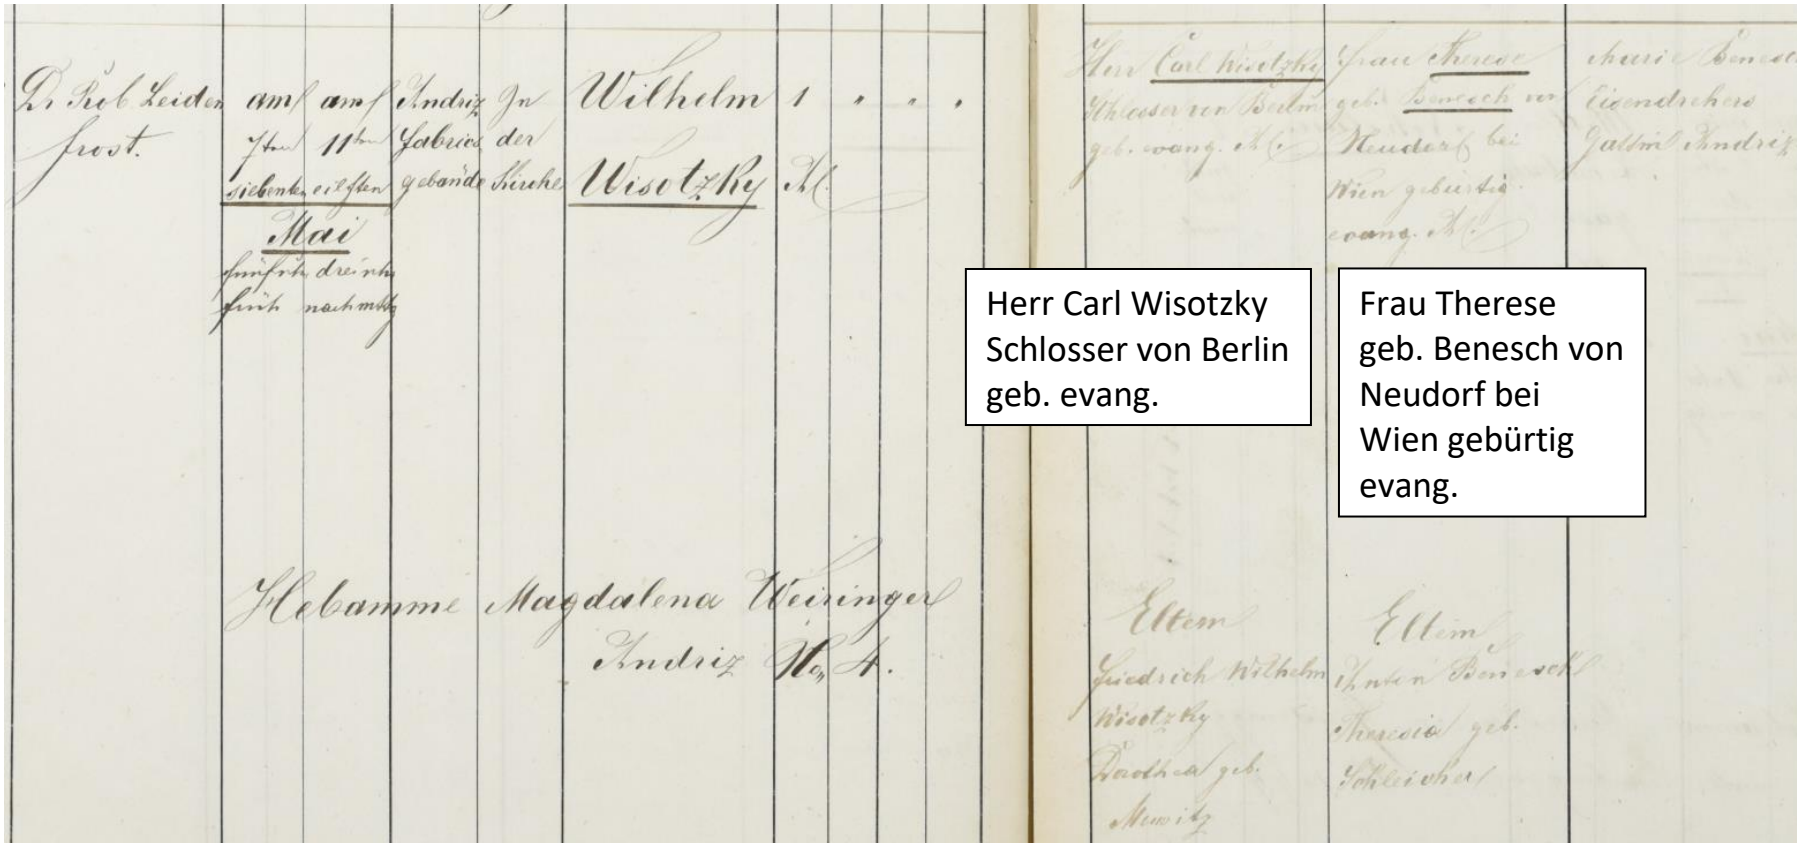 Dr Rob Leiden
frost.
am
7ten
siebenten
am
11ten
eilften
Mai
fünfuhr
früh
dreiuhr
nachmttg
Andriz
Fabrics
gebäude
In
der
Kirche
Wilhelm
Wisotzky
1 " " "
A.C.
Hebamme Magdalena Weiringer
Andriz No 4.
Herr Carl Wisotzky
Schlosser von Berlin
geb. evang. A.C.
Frau Therese
geb. Benesch von
Neudorf bei
Wien gebürtig
evang. A.C.
Marie Benesch
Eisendrehers
Gattin Andriz
Herr Carl Wisotzky
Schlosser von Berlin
geb. evang.
Frau Therese
geb. Benesch von
Neudorf bei
Wien gebürtig
evang.
Eltern
Friedrich Wilhelm
Wisotzky
Dorothea geb.
Eltern
Anton Benesch
Theresia geb.
Schleicher